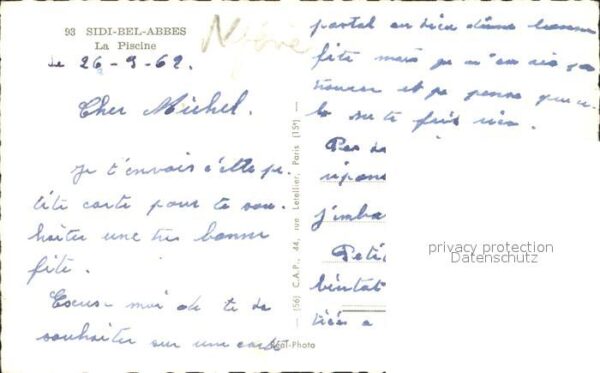 93 SIDI-BEL-ABBES
La Piscine
le 26-9-62.
Cher Michel.
Je t'envois cette pe
tite carte pour te sou
haiter une très bonne
fête.
Excuse moi de te
souhaiter sur une carte
postal au lieu d'une bonne
fête mais je n'en ai pas
trouver et je pense que ce
la ne te fais rien.
j'emba
Petit
bientat
(56) C.A.P., 44, rue Letellier, Paris (15e)
Réal-Photo
privacy protection
Datenschutz